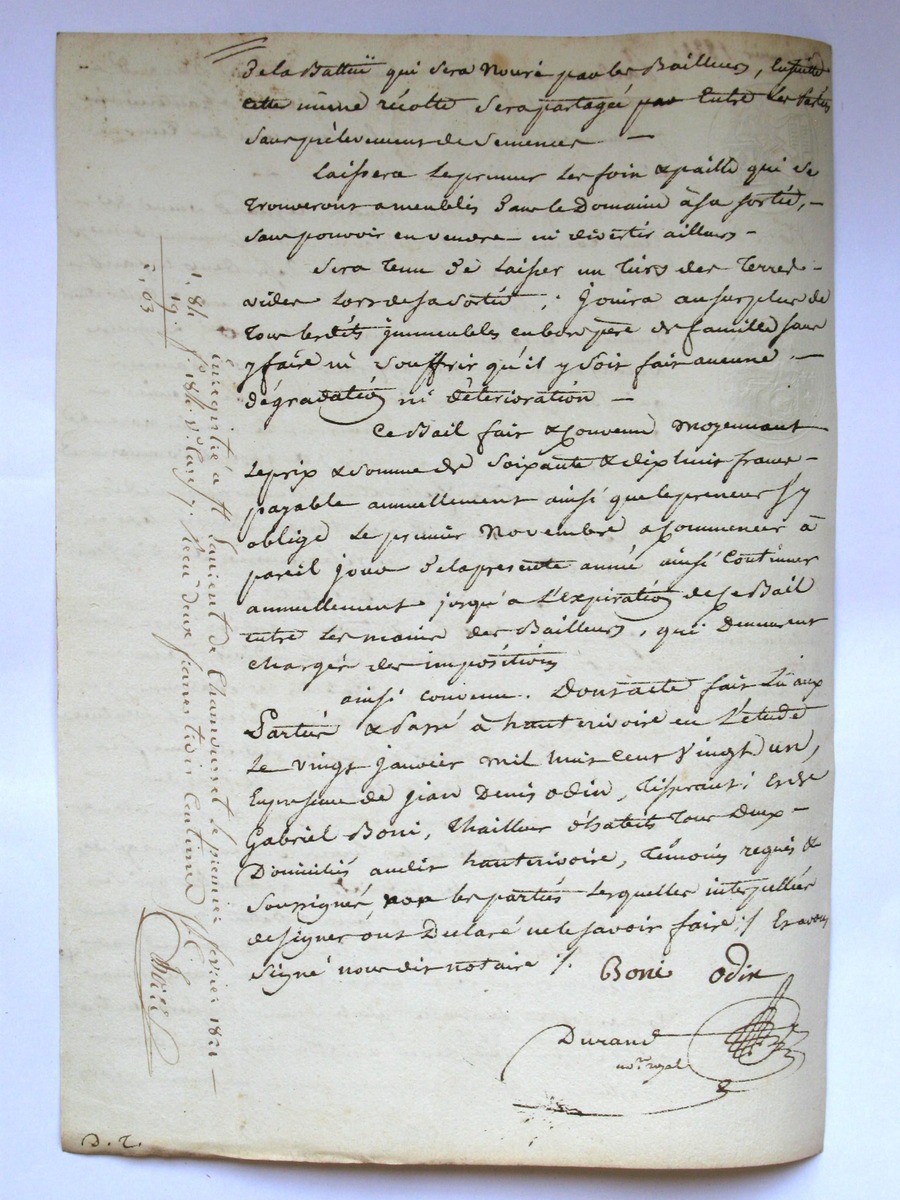 de la Battuë qui sera nouré par les Bailleurs, Ensuitte
cette même récolte sera partagée par Entre Les Parties
sans prélevement de semences —
Laissera le preneur Les foin & paille qui se
trouveront ameublés Dans le Domaine à sa sortie, —
sans pouvoir en vendre ni divertir ailleurs —
Sera Tenu de Laisser un tiers des Terres
vuides Lors de sa sortie ; jouira au surplus de
tous lesdits immeubles en bon père de famille sans
y faire ni souffrir qu'il y soit fait aucune —
dégradation ni déterioration —
Ce Bail fait & Convenu moyennant
le prix & somme de soixante & dix huit francs —
payable annuellement ainsi que le preneur s'y
oblige Le premier Novembre a Commencer à
pareil jour de la presente année ainsi Continuer
annuellement jusqu'a L'expiration de ce Bail
entre Les mains des Bailleurs, qui Demeurent
chargés des impositions
ainsi convenu. Dont acte fait Lu aux
Parties & Passé à hauterivoire en L'étude
Le vingt janvier mil huit cent vingt un,
En presence de jean Denis odin, Tisserant ; Et de
Gabriel Boni, thailleur d'habits Tous Deux —
Domiciliés audit hauterivoire, témoins requis &
soussignés les parties Lesquelles interpellées
de signer ont Declaré ne le savoir faire ;/ Et avons
signé nous dit notaire /.
Boni odin
Durand
no.re royal
D. T.
Enregistré à St Laurent de Chamousset le premier février 1821 —
f.o 184 v.o Case 7. Recu deux francs trois Centimes
1, 84
19.
2, 03